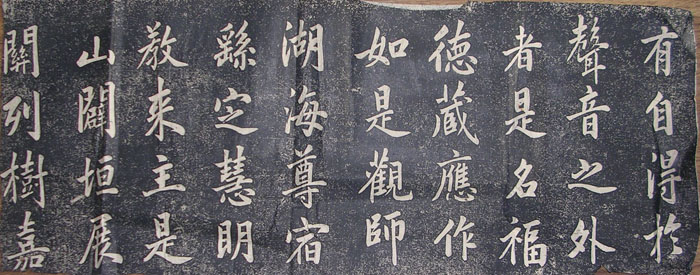 有自得於
聲音之外
者是名福
德蔵應作
如是觀師
湖海尊宿
繇定慧明
教来主是
山闢垣展
開列樹嘉